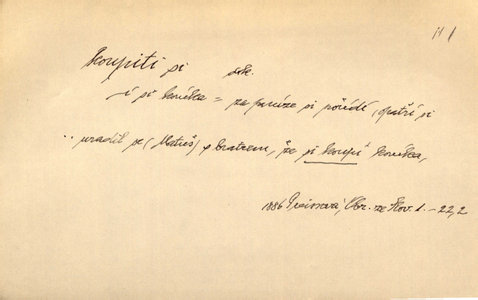 koupiti si dok.
-i si koníčka = za peníze si pořídí, opatří si
.. uradil se (Matúš) s bratrem, že si koupí koníčka,
1886 Preissová, Obr. ze Slov. 1. - 22,2